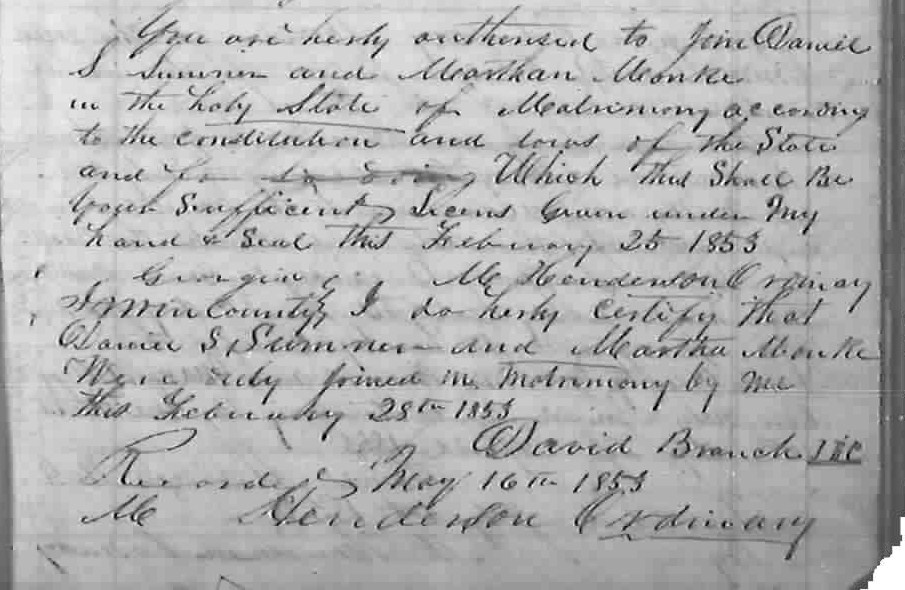 You are herby authorised to Join Daniel
S Sumner and Marthan Monke
in the holy State of Matrimony according
to the constitution and laws of the State
and for so doing Which this Shall Be
your Sufficent Licens Given under My
hand & Seal This February 25 1853
Georgia M Henderson Ordinary
Irwin County I do herby Certify that
Daniel S Sumner and Martha Monke
Were duly Joined in Matrimony by me
this February 28th 1853
David Branch
Recorded May 16th 1853
M Henderson Ordinary